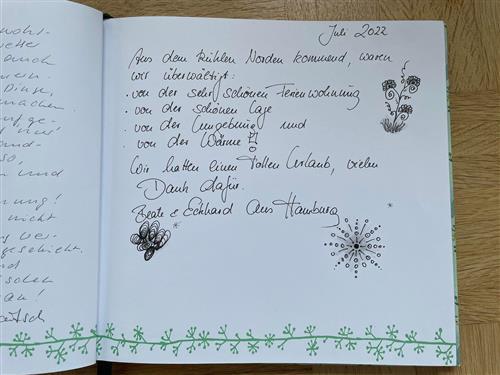 wohl-
auch
Dinge,
machen
nicht
und
Juli 2022
Aus dem kühlen Norden kommend, waren
wir überwältigt:
· von der sehr schönen Ferienwohnung
· von der schönen Lage
· von der Umgebung und
· von der Wärme!
Wir hatten einen tollen Urlaub, vielen
Dank dafür.
Beate & Eckhard aus Hamburg